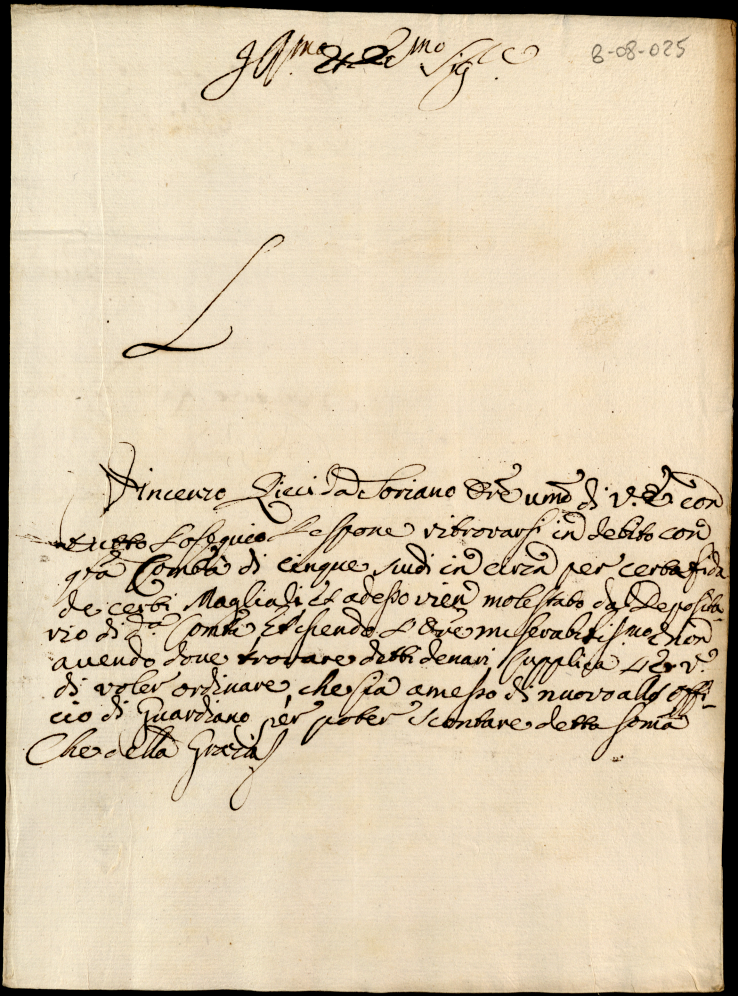 Ill.mo et Ecc.mo Sig.re
8-08-025
Vincenzo Dieci da Soriano Ore umo di V. E. con
tutto L'osequio Le sspone ritrovarsi in debito con
qta Comta di cinque scudi in circa per certa fida
de certi Magliali, Et adesso vien molestato dal Deposita-
rio di da Comta Et essendo L'Ore miserabilissimo, e non
auendo doue trovare detti denari supplica L'E. V.
di voler ordinare che sia amesso di nuovo allo offi-
cio di Guardiano per poter scontare detta soma
Che della Grazia